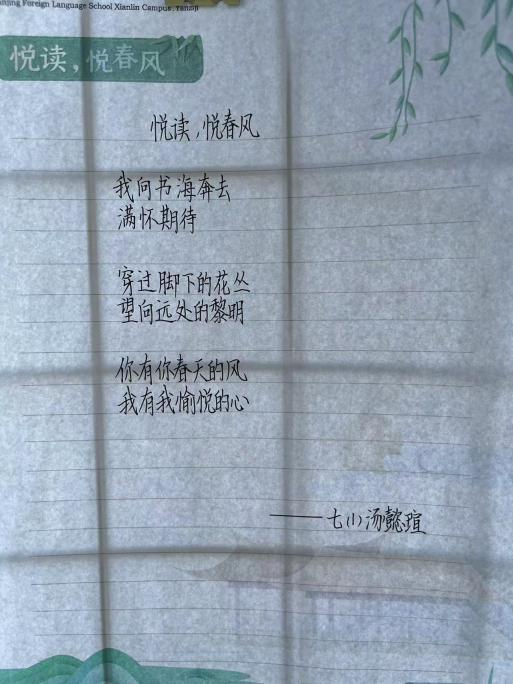 Foreign Language School Xianlin Campus, Yanziji
悦读，悦春风
悦读，悦春风
我向书海奔去
满怀期待
穿过脚下的花丛
望向远处的黎明
你有你春天的风
我有我愉悦的心
——七(1)汤懿瑄